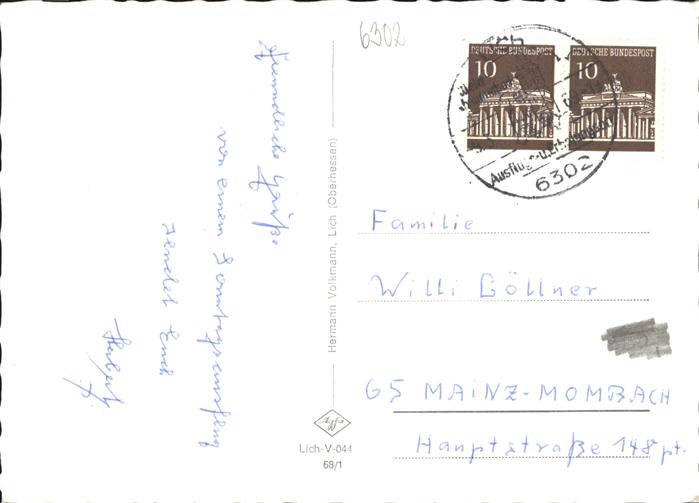 6302
freundliche Grüße
von einem Sonntagsausflug
sendet Euch
Herbert
Hermann Volkmann, Lich (Oberhessen)
Agfa
Lich-V-044
68/1
DEUTSCHE BUNDESPOST
10
DEUTSCHE BUNDESPOST
10
Ausflugs- u. Erholungsort
6302
Familie
Willi Göllner
65 MAINZ-MOMBACH
Hauptstraße 148 pt.